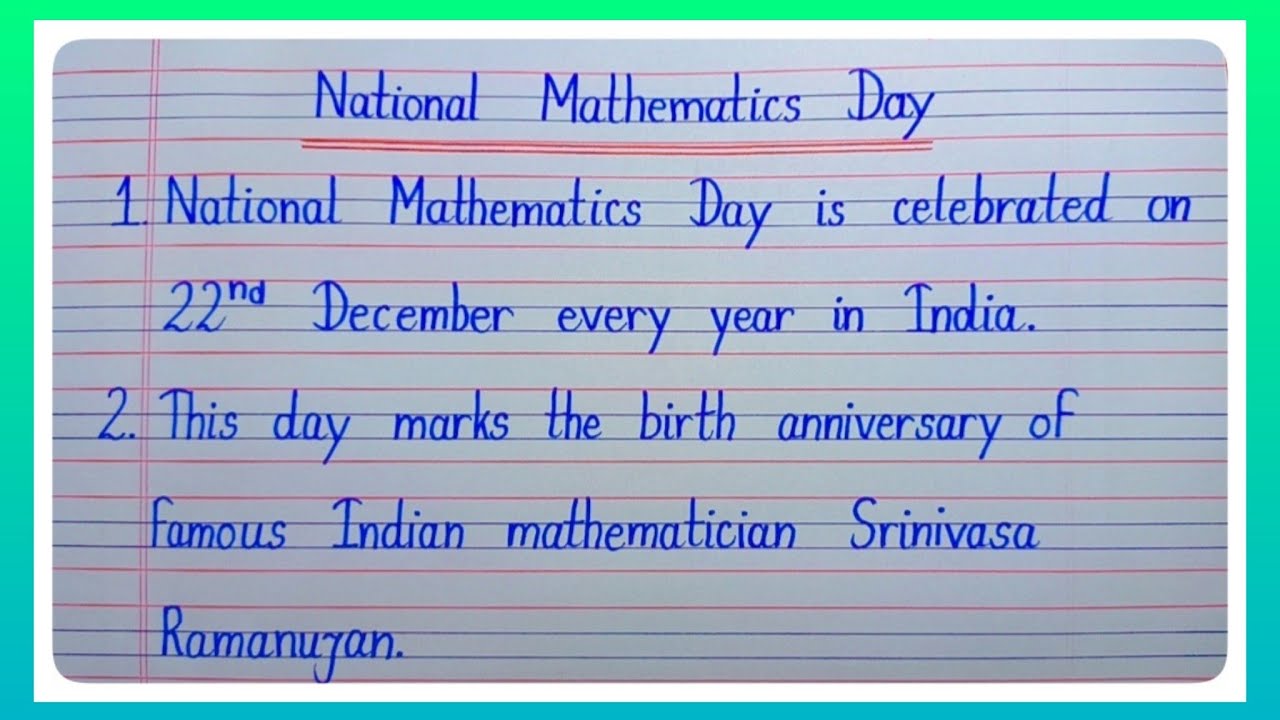 National Mathematics Day
1. National Mathematics Day is celebrated on
22nd December every year in India.
2. This day marks the birth anniversary of
famous Indian mathematician Srinivasa
Ramanujan.